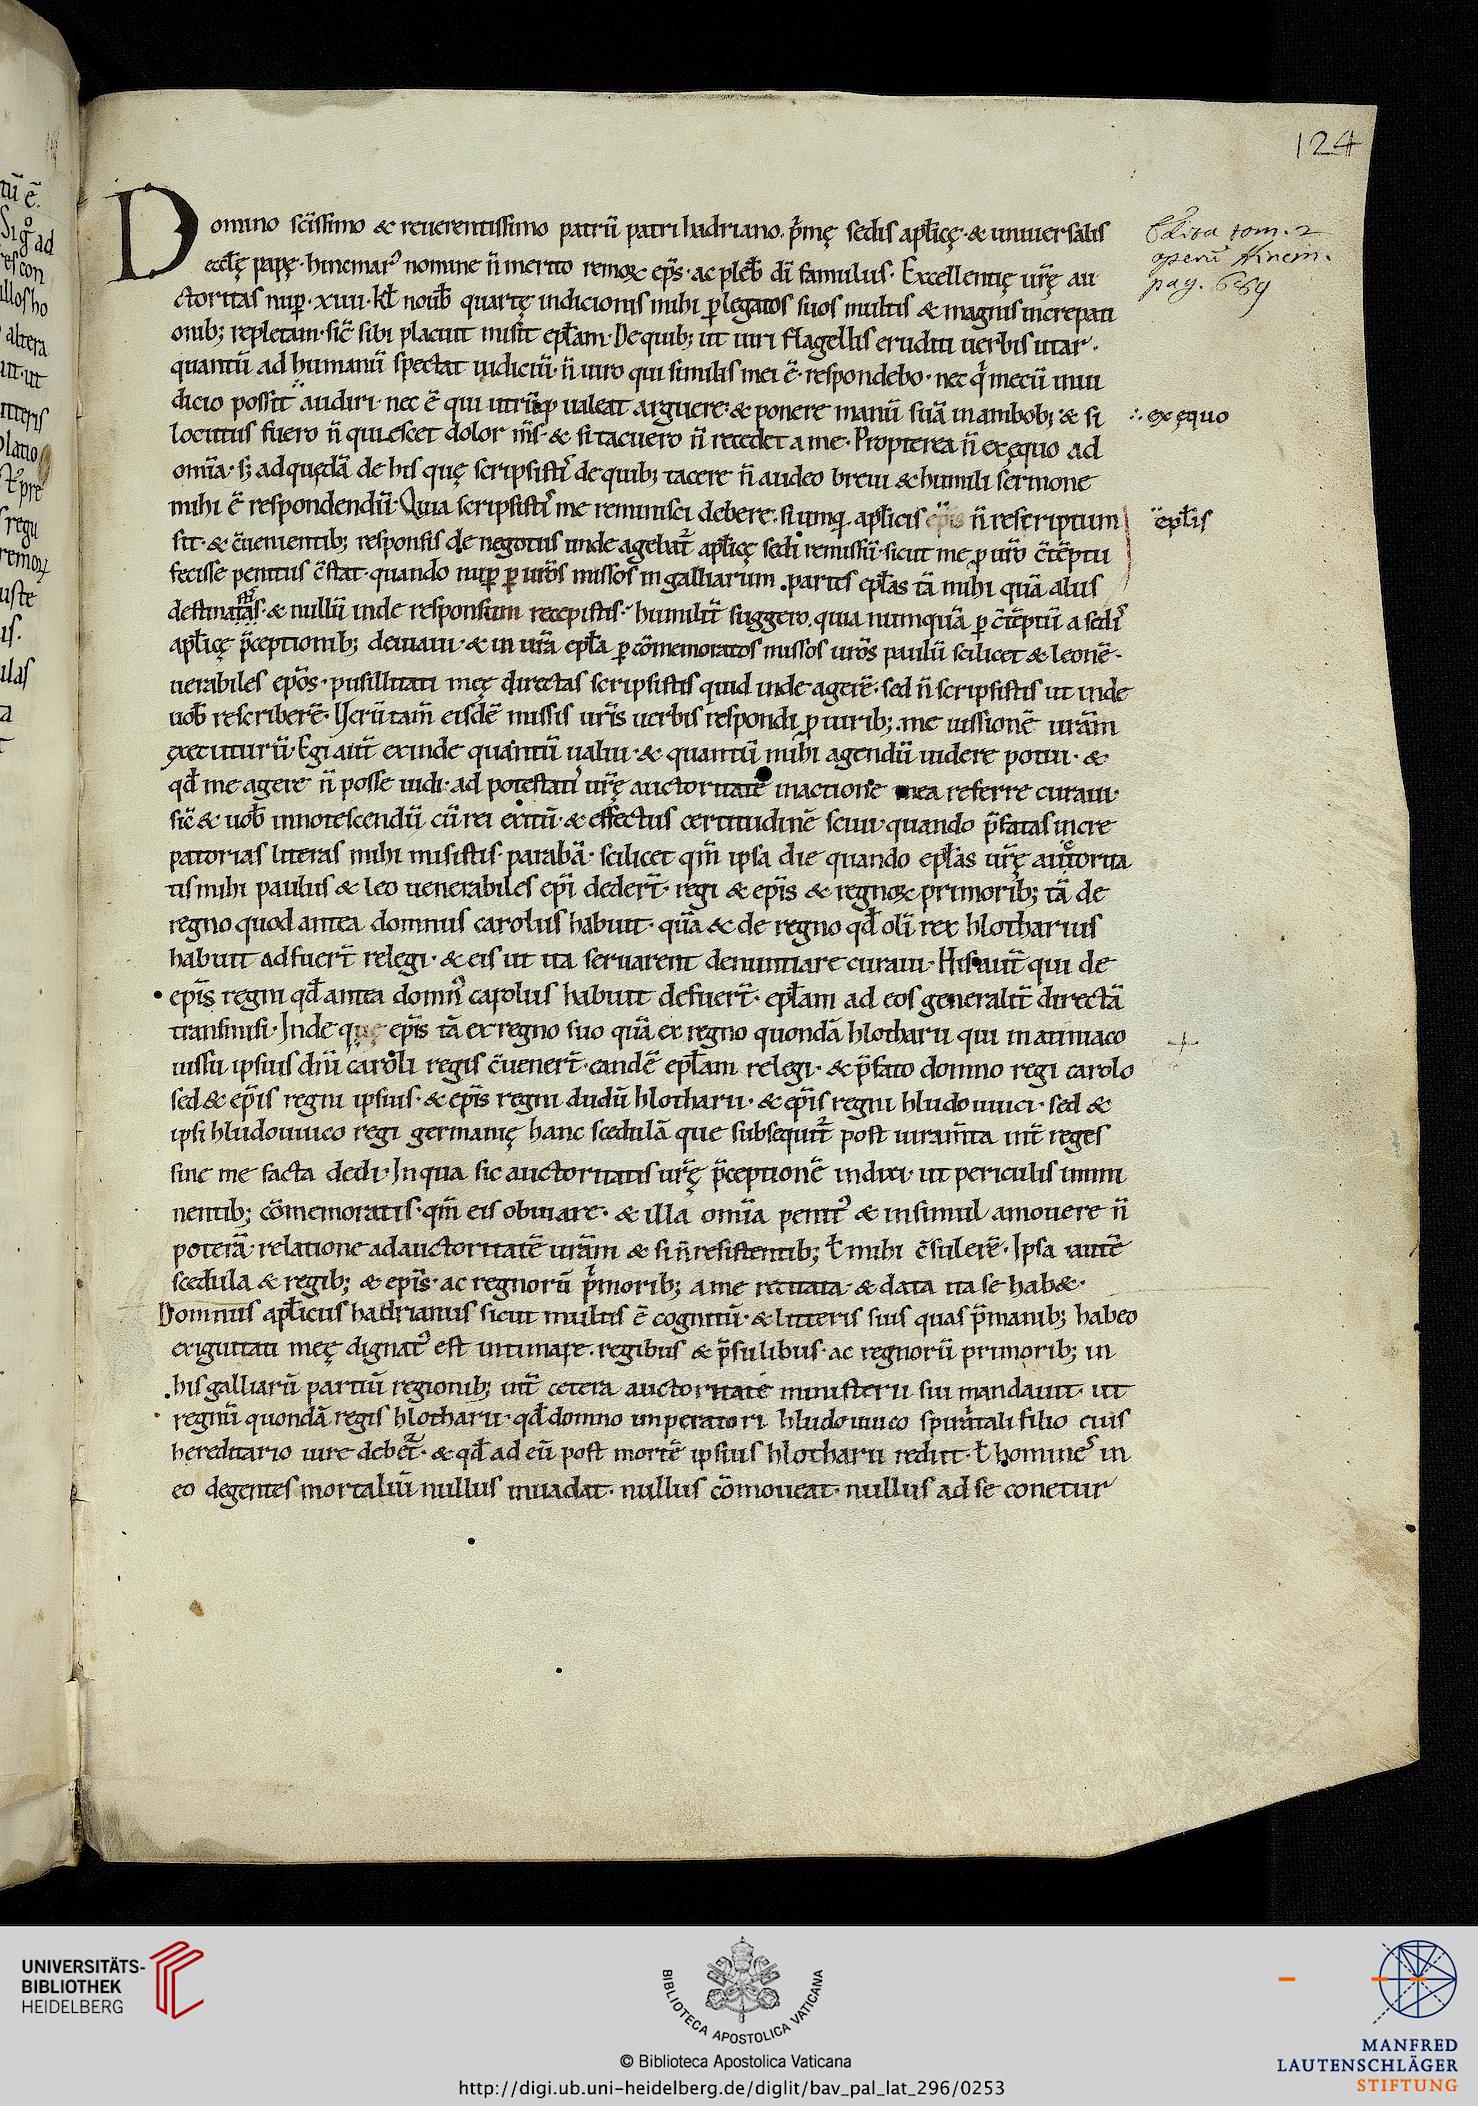 124
Domino scissimo & reuerentissimo patrū patri hadriano. p̄mę sedis aplicę · & uniuersalis
Edita tom. 2
operū Hincm.
pag. 689
ecclę papę · hincmar' nomine n̄ merito remoꝝ ep̄s · ac pleb̄ dī famulus · Excellentię ur̄ę au
ctoritas nup̄ · xuiii · kl̄ nouēb quartę indicionis mihi p̱ legatos suos multis & magnis increpati
onib; repletam · sic̄ sibi placuit misit ep̄lam · De quib; ut uiri flagellis eruditi uerbis utar ·
quantū ad humanū spectat iudiciū · n̄ uiro qui similis mei ē · respondebo · nec q̄ mecū in iu
dicio possit audiri · nec ē qui utrūq; ualeat arguere · & ponere manū suā in ambob; & si
∴ ex ęquo
locutus fuero n̄ quiescet dolor m̄s · & si tacuero n̄ recedet a me · Propterea n̄ ex ęquo ad
om̄a · s; ad quędā de his quę scripsisti' de quib; tacere n̄ audeo breui & humili sermone
mihi ē respondendū · Quia scripsisti' me reminisci debere · si umq̄ · aplicis ep̄is n̄ rescriptum
ep̄lis
sit · & c̄uenientib; responsis de negotiis unde agebat' aplicę sedi remissū · sicut me p̱ ur̄o c̄tēptu
fecisse penitus c̄stat · quando nup̄ p̱ ur̄os missos in galliarum · partes ep̄las tā mihi quā aliis
destinatas · & nullū inde responsum recepistis · humilit̄ suggero · quia numquā p̱ c̄tēptū a sedi'
aplicę p̄ceptionib; deuiaui · & in ur̄a ep̄la p̱ cōmemoratos missos ur̄os paulū scilicet & leonē ·
uerabiles ep̄os · pusillitati meę directas scripsistis quid inde agerē · sed n̄ scripsistis ut inde
uob̄ rescriberē · Uerū tam̄ eisdē missis ur̄is uerbis respondi p̱ uirib; · me iussionē ur̄am
executurū · Egi aut̄ exinde quantū ualui · & quantū mihi agendū uidere potui · &
qđ me agere n̄ posse uidi · ad potestati' ur̄ę auctoritatē inactione mea referre curaui ·
sic̄ & uob̄ innotescendū cū rei exitū · & effectus certitudinē sciui · quando p̄fatas incre
patorias literas mihi misistis · parabā · scilicet qm̄ ipsa die quando ep̄las ur̄ę auctorita
tis mihi paulus & leo uenerabiles ep̄i dedert̄ · regi & ep̄is & regnoꝝ primorib; tā de
regno quod antea domnus carolus habuit · quā & de regno qđ oli rex hlotharius
habuit adfuert̄ relegi · & eis ut ita seruarent denuntiare curaui · His aut̄ qui de
ep̄is regni qđ antea domn' carolus habuit defuert̄ · ep̄lam ad eos generalit̄ directā
transmisi · Inde quę ep̄is tā ex regno suo quā ex regno quondā hlotharii qui in attiniaco
iussu ipsius dn̄i caroli regis c̄uenert̄ · eandē ep̄lam relegi · & p̄fato domno regi carolo
sed & ep̄is regni ipsius · & ep̄is regni dudū hlotharii · & ep̄is regni hludouuici · sed &
ipsi hludouuico regi germanię hanc scedulā que subsequit̄ post iuram̄ta int̄ reges
sine me facta dedi · In qua sic auctoritatis ur̄ę p̄ceptionē indixi · ut periculis immi
nentib; cōmemoratis · qm̄ eis obuiare · & illa om̄ia penit' & insimul amouere n̄
poterā · relatione ad auctoritatē ur̄am & si n̄ resistentib; ł mihi c̄sulerē · Ipsa autē
scedula & regib; & ep̄is · ac regnorū p̄morib; a me recitata · & data ita se hab& ·
Domnus aplicus hadrianus sicut multis ē cognitū · & litteris suis quas p̄ manib; habeo
exiguitati meę dignat' est intimare · regibus & p̄sulibus · ac regnorū primorib; in
his galliarū partiū regionib; int̄ cetera auctoritatē ministerii sui mandauit · ut
regnū quondā regis hlotharii · qđ domno imperatori hludouuico spiritali filio eius
hereditario iure debet̄ · & qđ ad eū post mortē ipsius hlotharii rediit · ł homine' in
eo degentes mortaliū nullus inuadat · nullus cōmoueat · nullus ad se conetur
UNIVERSITÄTS-
BIBLIOTHEK
HEIDELBERG
BIBLIOTECA APOSTOLICA VATICANA
© Biblioteca Apostolica Vaticana
http://digi.ub.uni-heidelberg.de/diglit/bav_pal_lat_296/0253
MANFRED
LAUTENSCHLÄGER
STIFTUNG